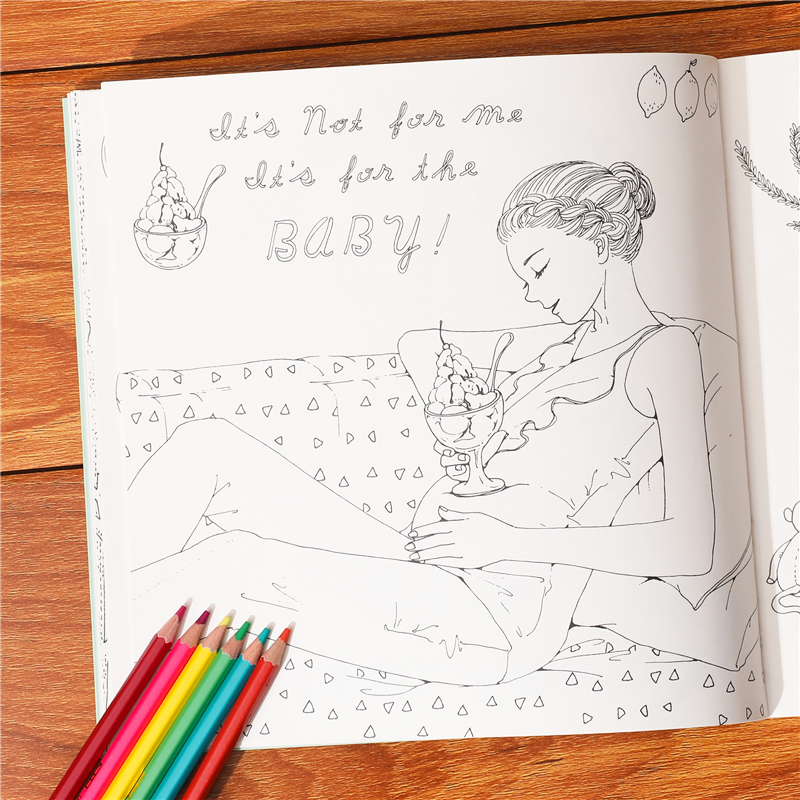 It's Not for me
It's for the
BABY!